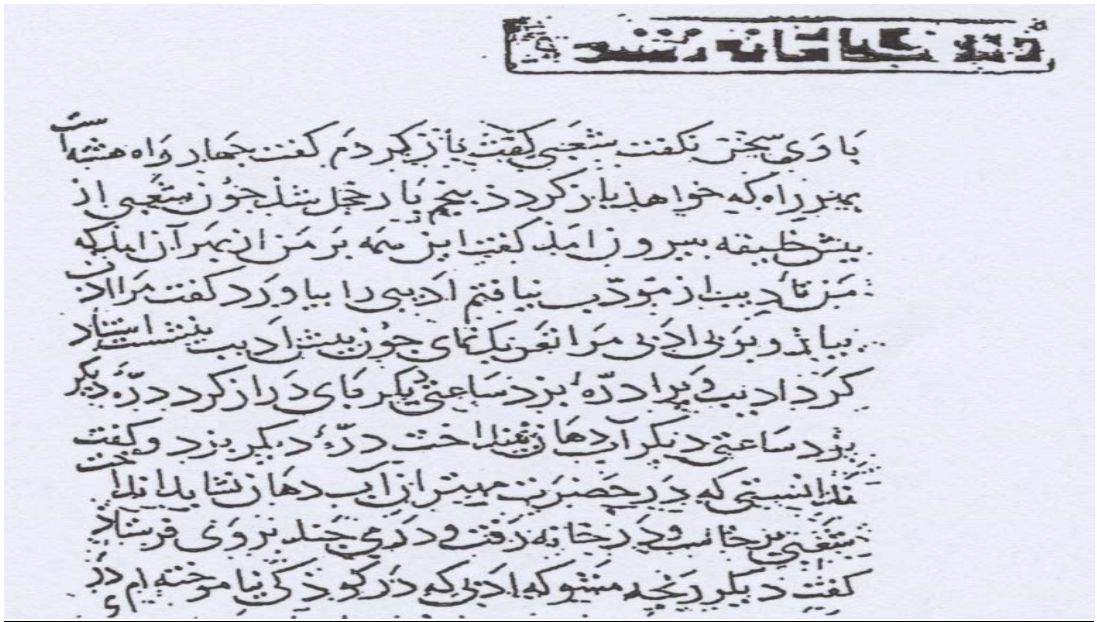 با وی سخن نگفت شعبی گفت باز کردم گفت چهار راه هشته است
بهتر راه که خواهذ باز کرد ذ پنجم بار خجل شذ جون شعبی از
پیش خلیفه بیرون امذ گفت این همه بر من از بهر آن امذ که
من تأدیب از مودّب نیافتم ادیبی را بیاورد گفت مرا ادب
بیاموز و بر بی ادبی مرا تعریک نمای جون پیش ادیب بنشست استناد
کرد ادیب ویرا درّهٔ بزد ساعتی دیگر پای دراز کرد درّهٔ دیگر
بزد ساعتی دیگر آب دهان بینداخت درّهٔ دیگر بزد و گفت
ندانستی که در حضرت مهتر از آب دهان نشاید انداخت
شعبی برخاست و در خانه رفت و درمی چند بر وی فرستاد
گفت دیگر رنجه مشو که ادبی که در کوذکی نیاموخته ام در